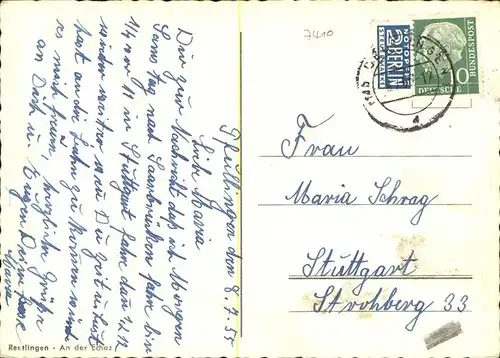 Pfullingen den 8.7.55
Liebe Maria
Dir zur Nachricht daß ich Morgen
Samstag nach Saarbrücken fahre bin
14 vor 11 in Stuttgart fahre dann 12
wieder weiter wenn Du Zeit u. Lust
hast an die Bahn zu kommen würde
es mich freuen, herzliche Grüße
an Dich u. Eugen Deine
Reutlingen - An der Echaz
7410
NOTOPFER
2 BERLIN
STEUERMARKE
10
DEUTSCHE
BUNDESPOST
Frau
Maria Schrag
Stuttgart
Strohberg 33